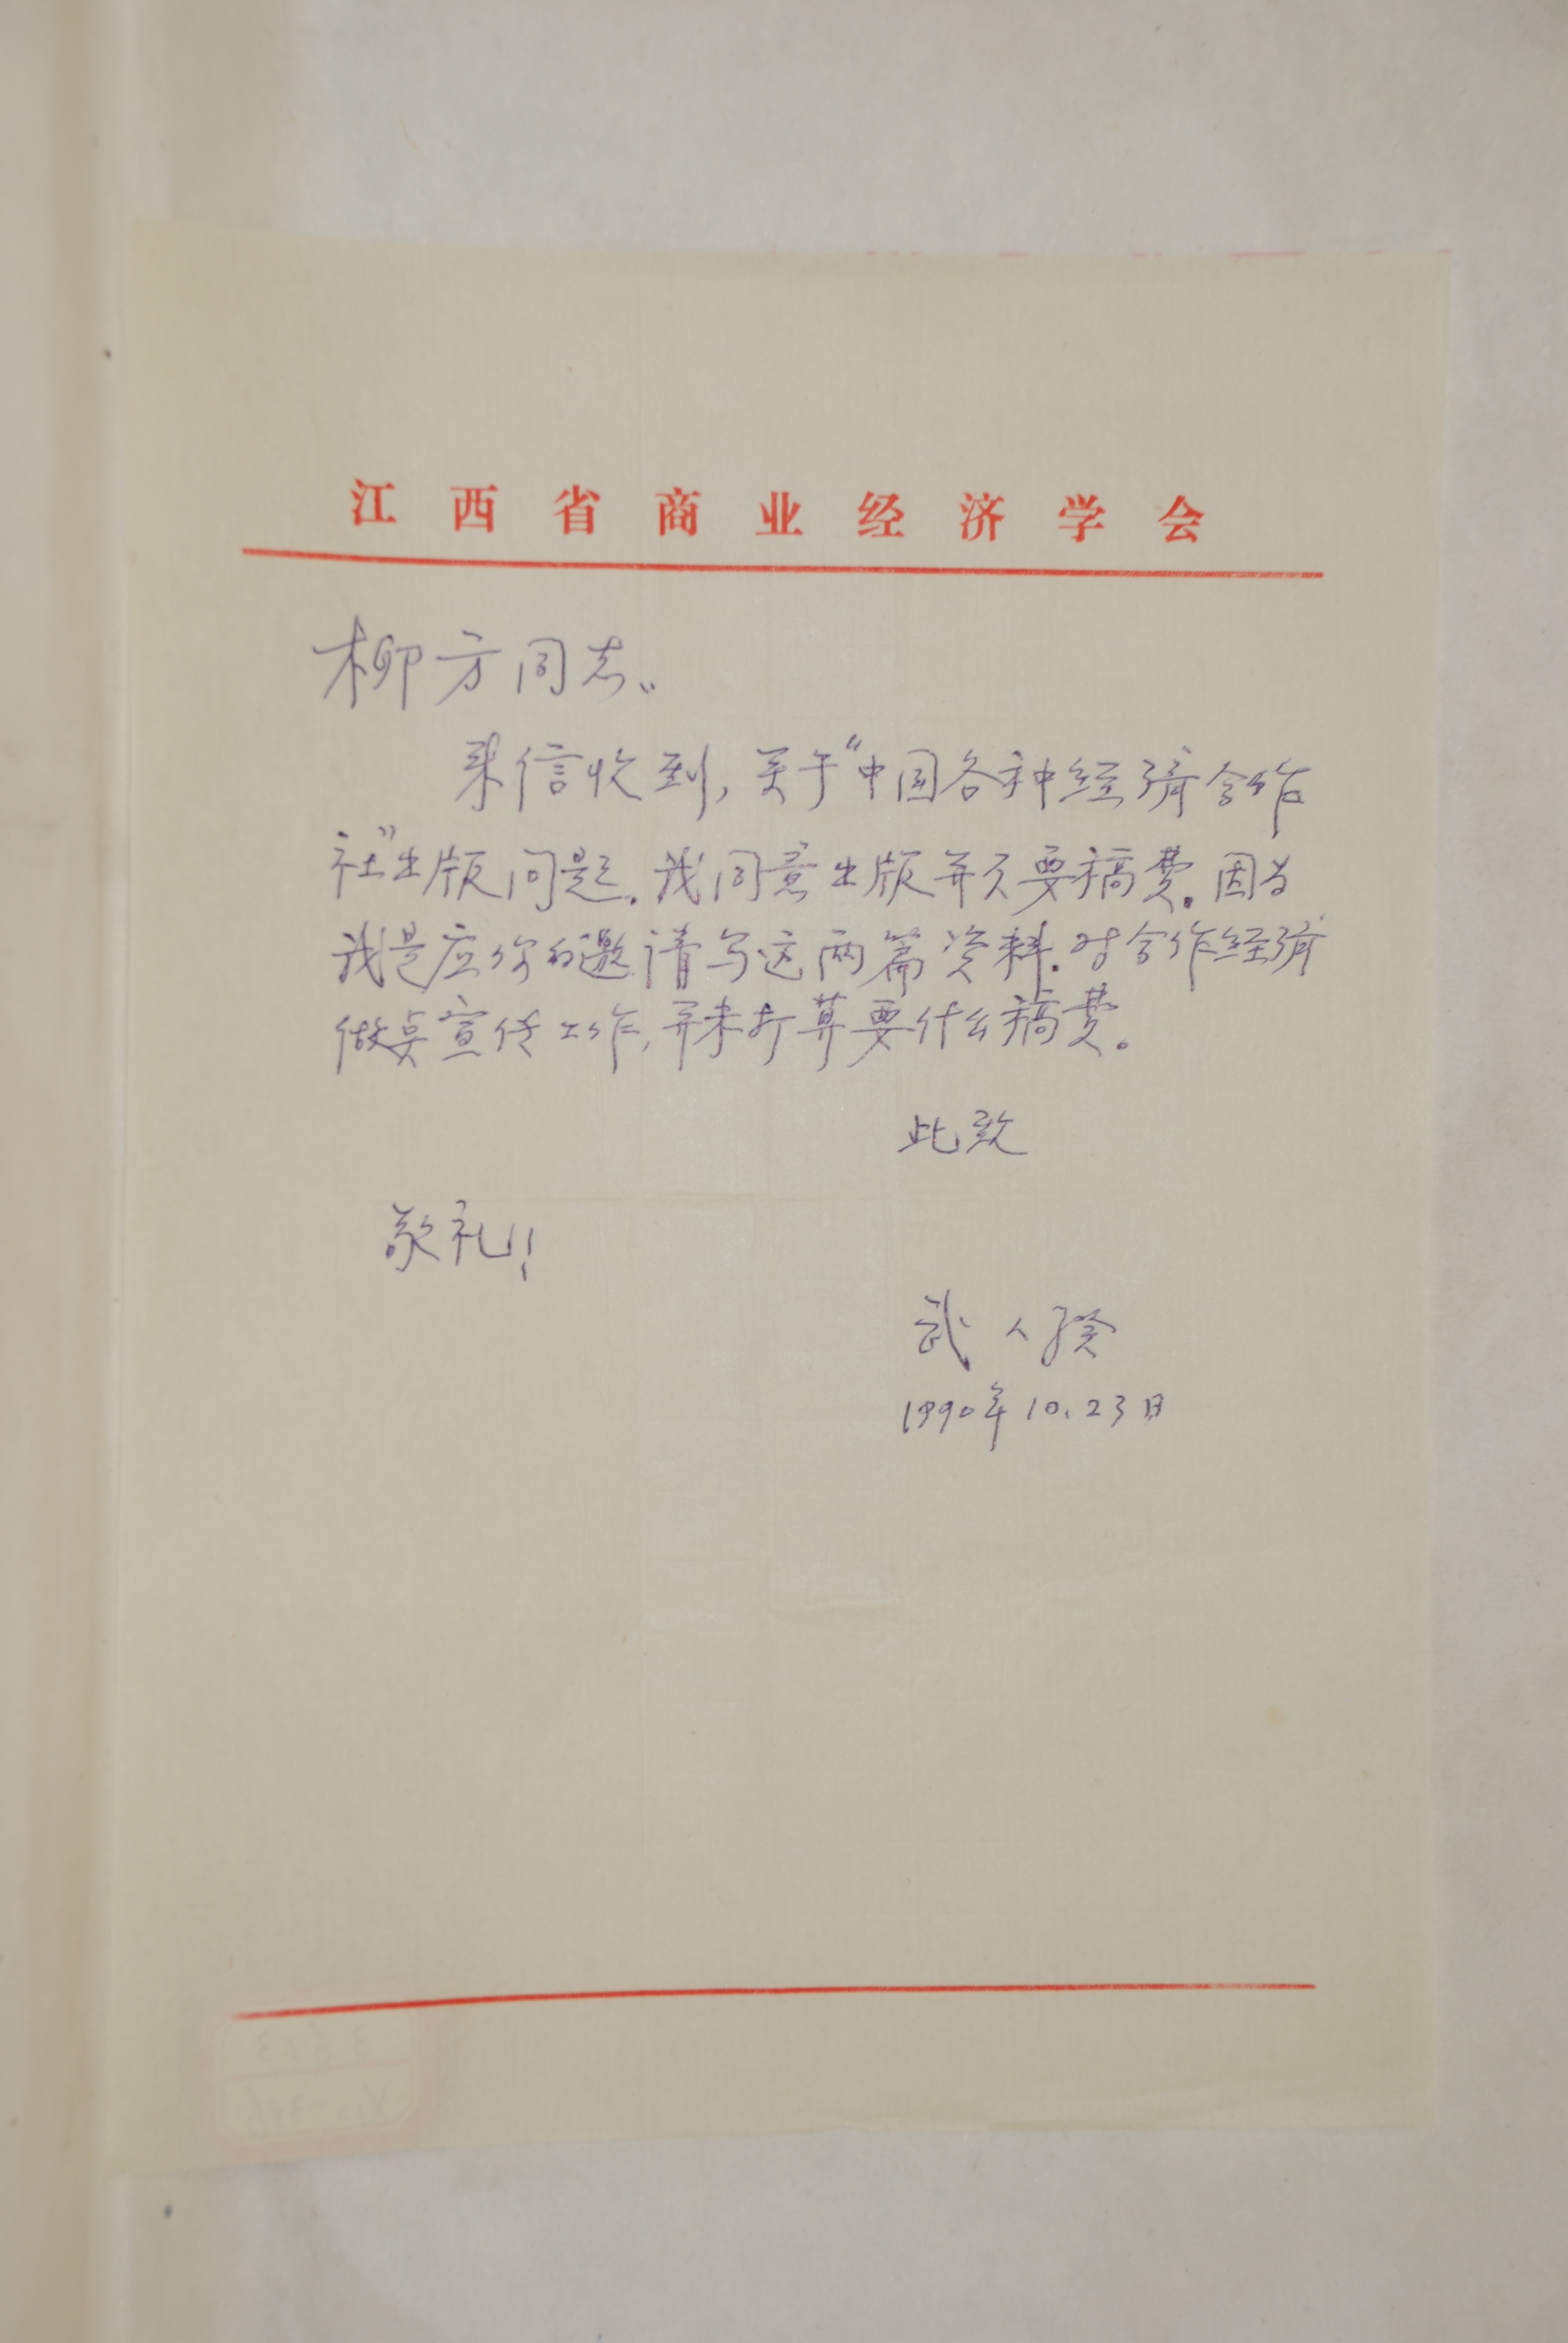 江西省商业经济学会
柳方同志：
来信收到，关于“中国各种经济合作
社”出版问题。我同意出版并不要稿费。因为
我是应你的邀请写这两篇资料。对合作经济
做点宣传工作，并未打算要什么稿费。
此致
敬礼！
武人
1990年10.23日